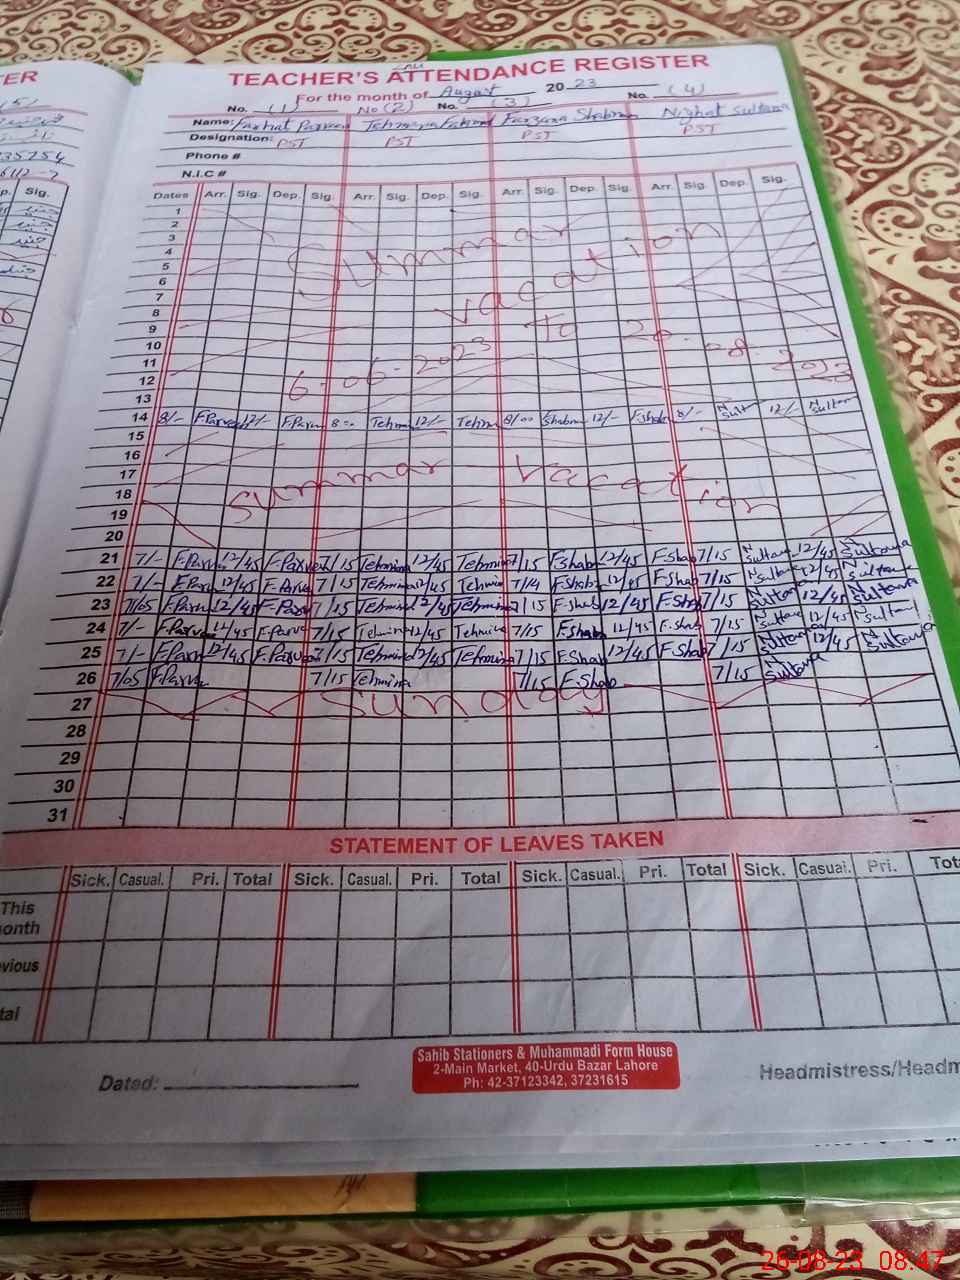 TER
TEACHER'S ATTENDANCE REGISTER
For the month of August 2023
No. (1) No (2) No. (3) No. (4)
Name: Farhat Parveen Tehmina Farzana Shabnam Nighat Sultana
Designation: PST PST PST PST
Phone #
N.I.C #
Dates Arr. Sig. Dep. Sig. Arr. Sig. Dep. Sig. Arr. Sig. Dep. Sig. Arr. Sig. Dep. Sig.
1
2
3
4
5
Summar
6
7
vacation
8
9
10
11
12
6-06-2023 To 20-08-2023
13
14 8/- F.Parveen 12/- F.Parve 8 Tehmi 12/- Tehmi 8/00 Shabn 12/- F.Shab 8/- N Sult 12/- N Sultan
15
16
17
Summar vacation
18
19
20
21 7/- F.Parve 12/45 F.Parveen 7/15 Tehmina 12/45 Tehmina 7/15 F.Shab 12/45 F.Shab 7/15 N Sultana 12/45 N Sultana
22 7/- F.Parv 12/45 F.Parve 7/15 Tehmina 12/45 Tehmin 7/14 F.Shab 12/45 F.Shab 7/15 N Sultana 12/45 N Sultana
23 7/05 F.Parv 12/45 F.Parv 7/15 Tehmina 12/45 Tehmina 7/15 F.Shab 12/45 F.Shab 7/15 N Sultana 12/45 N Sultana
24 7/- F.Parve 12/45 F.Parve 7/15 Tehmina 12/45 Tehmina 7/15 F.Shab 12/45 F.Shab 7/15 N Sultana 12/45 N Sultana
25 7/- F.Parv 12/45 F.Parveen 7/15 Tehmina 12/45 Tehmina 7/15 F.Shab 12/45 F.Shab 7/15 N Sultana 12/45 N Sultana
26 7/05 F.Parve 7/15 Tehmina 7/15 F.Shab 7/15 N Sultana
27 Sunday
28
29
30
31
STATEMENT OF LEAVES TAKEN
Sick. Casual. Pri. Total Sick. Casual. Pri. Total Sick. Casual. Pri. Total Sick. Casual. Pri. Tot
This
onth
vious
tal
Sahib Stationers & Muhammadi Form House
2-Main Market, 40-Urdu Bazar Lahore
Ph: 42-37123342, 37231615
Dated: Headmistress/Headm
26-08-23 08:47